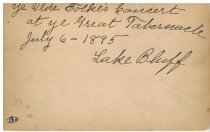 ye Olde Folkes Concert
at ye Great Tabernacle
July 6 - 1895
Lake Bluff